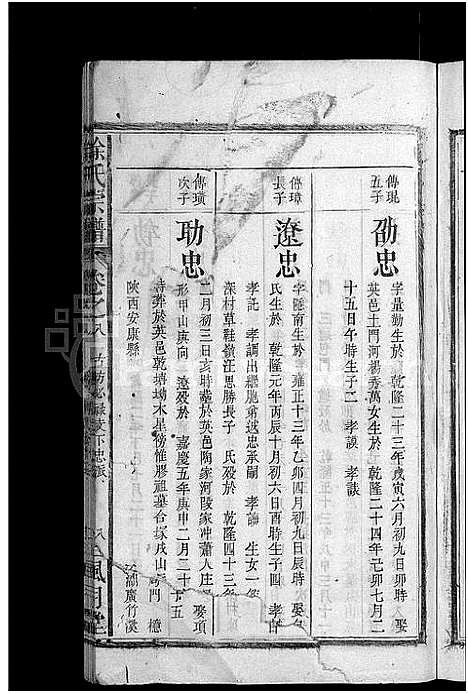 傳琨
五子
劭忠
字量勤生於 乾隆二十三年戊寅六月初九日卯時 娶
英邑土門河楊秀萬女生於 乾隆二十四年己卯七月二
十五日午時生子二 孝謨 孝談
傳璋
長子
遼忠
字隧南生於 雍正十三年乙卯四月初九日辰時 娶
氏生於 乾隆元年丙辰十月初六日酉時生子四 孝
孝託 孝調出繼胞弟遜忠承嗣 孝 生女一
深村草鞋嶺汪思勝長子 氏歿於 乾隆四十三年
二月初三日亥時葬於英邑陶家河陵家冲蕭人庄
形甲山庚向 遼歿於 嘉慶五年庚申二月二十五
時葬於英邑乾塘坳木星傍惟膠祖墓合塚戌山
傳璜
次子
㓛忠
娶項
陝西安康縣
徐氏宗譜
卷之八
下忠派
八
風月堂